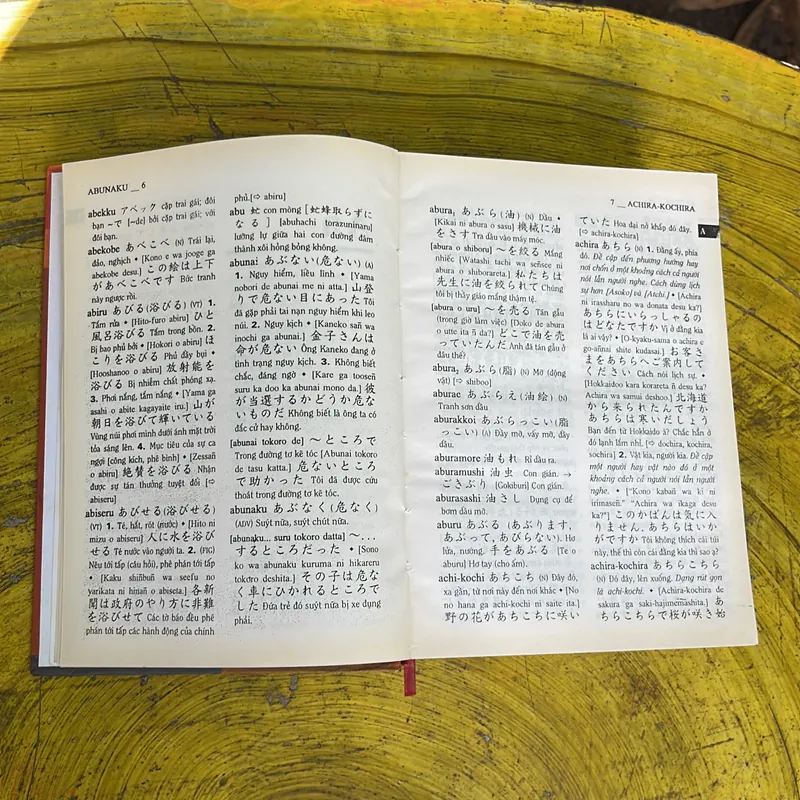 ABUNAKU __ 6
abekku アベック cặp trai gái; đôi
bạn ~で [~de] bởi cặp trai gái; với
đôi bạn.
abekobe あべこべ (N) Trái lại,
đảo, nghịch • [Kono e wa jooge ga
abekobe desu.] この絵は上下
があべこべです Bức tranh
này ngược rồi.
abiru あびる(浴びる) (VT) 1.
Tắm rửa • [Hito-furo abiru] ひと
風呂浴びる Tắm trong bồn. 2.
Bị bao phủ bởi • [Hokori o abiru] ほ
こりを浴びる Phủ đầy bụi •
[Hooshanoo o abiru] 放射能を
浴びる Bị nhiễm chất phóng xạ.
3. Phơi nắng, tắm nắng • [Yama ga
asahi o abite kagayaite iru.] 山が
朝日を浴びて輝いている
Vùng núi phơi mình dưới ánh mặt trời
tỏa sáng lên. 4. Mục tiêu của sự ca
ngợi [công kích, phê bình] • [Zessan
o abiru] 絶賛を浴びる Nhận
được sự tán thưởng tuyệt đối [⇨
abiseru]
abiseru あびせる(浴びせる)
(VT) 1. Té, hắt, rót (nước) • [Hito ni
mizu o abiseru] 人に水を浴び
せる Té nước vào người ta. 2. (FIG)
Nêu tới tấp (câu hỏi), phê phán tới tấp
• [Kaku shiñbuñ wa seefu no
yarikata ni hinañ o abiseta.] 各新
聞は政府のやり方に非難
を浴びせて Các tờ báo đều phê
phán tới tấp các hành động của chính
phủ.[⇨ abiru]
abu 虻 con mòng [虻蜂取らずに
なる] [abuhachi torazuninaru]
lưỡng lự giữa hai con đường đâm
thành xôi hỏng bỏng không.
abunai あぶない(危ない) (A)
1. Nguy hiểm, liều lĩnh • [Yama
nobori de abunai me ni atta.] 山登
りで危ない目にあった Tôi
đã gặp phải tai nạn nguy hiểm khi leo
núi. 2. Nguy kịch • [Kaneko sañ wa
inochi ga abunai.] 金子さんは
命が危ない Ông Kaneko đang ở
tình trạng nguy kịch. 3. Không biết
chắc, đáng ngờ • [Kare ga tooseñ
suru ka doo ka abunai mono da.] 彼
が当選するかどうか危な
いものだ Không biết là ông ta có
đắc cử hay không.
[abunai tokoro de] ~ところで
Trong đường tơ kẽ tóc [Abunai tokoro
de tasu katta.] 危ないところ
で助かった Tôi đã được cứu
thoát trong đường tơ kẽ tóc.
abunaku あぶなく(危なく)
(ADV) Suýt nữa, suýt chút nữa.
[abunaku... suru tokoro datta] ~...
するところだった • [Sono
ko wa abunaku kuruma ni hikareru
tokoro deshita] その子は危な
く車にひかれるところでし
た Đứa trẻ đó suýt nữa bị xe đụng
phải.
7 __ ACHIRA-KOCHIRA
abura₁ あぶら(油) (N) Dầu •
[Kikai ni abura o sasu] 機械に油
をさす Tra dầu vào máy móc.
[abura o shiboru] ~を絞る Mắng
nhiếc [Watashi tachi wa señsee ni
abura o shiborareta.] 私たちは
先生に油を絞られて Chúng
tôi bị thầy giáo mắng thậm tệ.
[abura o uru] ~を売る Tán gẫu
(trong giờ làm việc) [Doko de abura
o utte ita ñ da?] どこで油を売
っていたんだ Anh đã tán gẫu ở
đâu thế?
abura₂ あぶら(脂) (N) Mỡ (động
vật) [⇨ shiboo]
aburae あぶらえ(油絵) (N)
Tranh sơn dầu.
aburakkoi あぶらっこい(脂
っこい) (A) Đầy mỡ, vấy mỡ, đầy
dầu.
aburamore 油もれ Rỉ dầu ra.
aburamushi 油虫 Con gián. →
ごきぶり [Gokiburi] Con gián.
aburasashi 油さし Dụng cụ để
bơm dầu mỡ.
aburu あぶる (あぶります,
あぶって, あぶらない). Hơ
lửa, nướng. 手をあぶる [Te o
aburu] Hơ tay (cho ấm).
achi-kochi あちこち (N) Đây đó,
xa gần, từ nơi này đến nơi khác • [No
no hana ga achi-kochi ni saite ita.]
野の花があちこちに咲い
ていた Hoa dại nở khắp đó đây.
[⇨ achira-kochira]
A
achira あちら (N) 1. Đằng ấy, phía
đó. Đề cập đến phương hướng hay
nơi chốn ở một khoảng cách cả người
nói lẫn người nghe. Cách dùng lịch
sự hơn [Asoko] và [Atchi.] • [Achira
ni irassharu no wa donata desu ka?]
あちらにいらっしゃるの
はどなたですか Vị ở đằng kia
là ai vậy? • [O-kyaku-sama o achira e
go-añnai shite kudasai.] お客さ
まをあちらへご案内して
ください Cách nói lịch sự. •
[Hokkaidoo kara korareta ñ desu ka?
Achira wa samui deshoo.] 北海道
から来られたんですか
あちらは寒いだしょう
Bạn đến từ Hokkaido à? Chắc hẳn ở
đó lạnh lắm nhỉ. [⇨ dochira, kochira,
sochira] 2. Vật kia, người kia. Đề cập
một người hay vật nào đó ở một
khoảng cách cả người nói lẫn người
nghe. • ["Kono kabañ wa ki ni
irimaseñ." "Achira wa ikaga desu
ka?"] このかばんは気に入
りません. あちらはいか
がですか Tôi không thích cái túi
này, thế thì còn cái đằng kia thì sao ạ?
achira-kochira あちらこちら
(N) Đó đây, lên xuống. Dạng rút gọn
là achi-kochi. • [Achira-kochira de
sakura ga saki-hajimemashita.] あ
ちらこちらで桜が咲き始